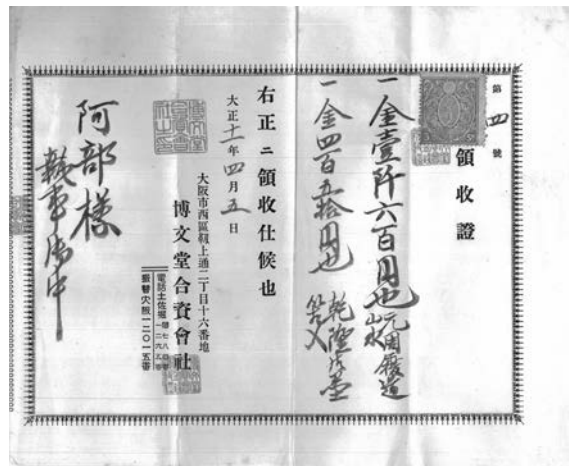 第四號
領收證
一金壹阡六百円也
一金四百五拾円也
右正ニ領收仕候也
大正十一年四月五日
大阪市西區靱上通二丁目十六番地
博文堂合資會社
電話土佐堀
振替大阪一二〇一五番
阿部樣
執事御中